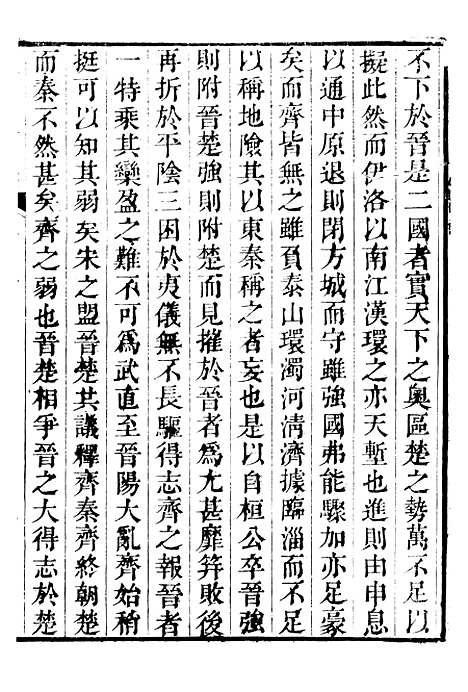 不下於晉是二國者實天下之奧區楚之勢萬不足以
擬此然而伊洛以南江漢環之亦天塹也進則由申息
以通中原退則閉方城而守雖強國弗能驟加亦足豪
矣而齊皆無之雖負泰山環濁河淸濟據臨淄而不足
以稱地險其以東秦稱之者妄也是以自桓公卒晉強
則附晉楚強則附楚而見摧於晉者爲尤甚靡筓敗後
再折於平陰三困於夷儀無不長驅得志齊之報晉者
一特乘其欒盈之難不可爲武直至晉陽大亂齊始稍
挺可以知其弱矣宋之盟晉楚共議釋齊秦齊終朝楚
而秦不然甚矣齊之弱也晉楚相爭晉之大得志於楚